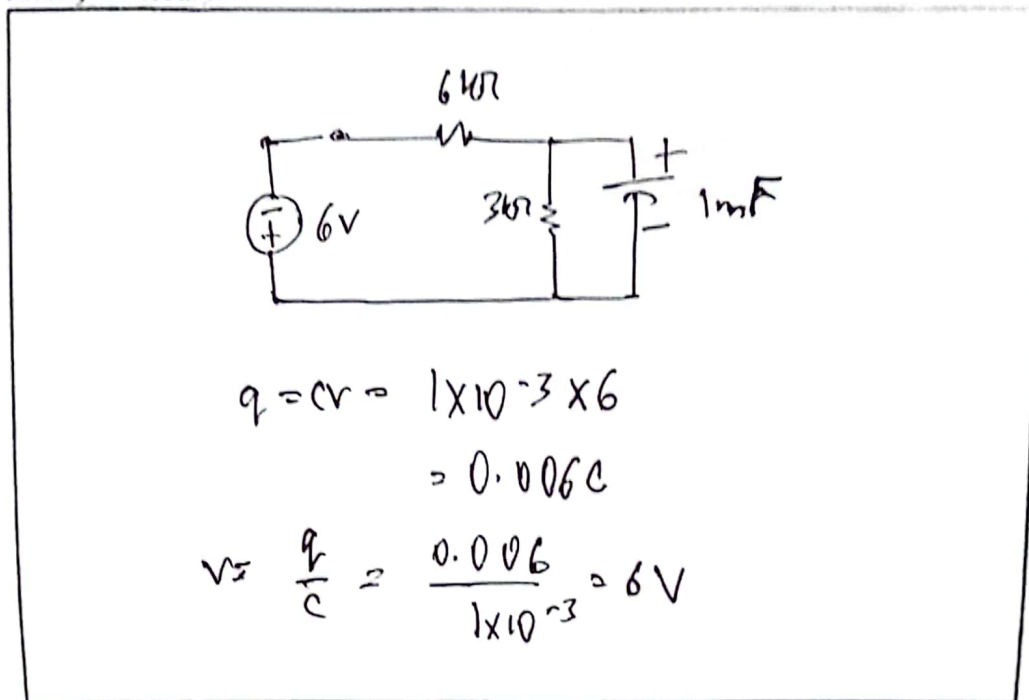 6kΩ
+
- + 6V 3kΩ 1mF
-
q = cv = 1x10-3 x6
= 0.006C
v = q/c = 0.006/1x10-3 = 6V